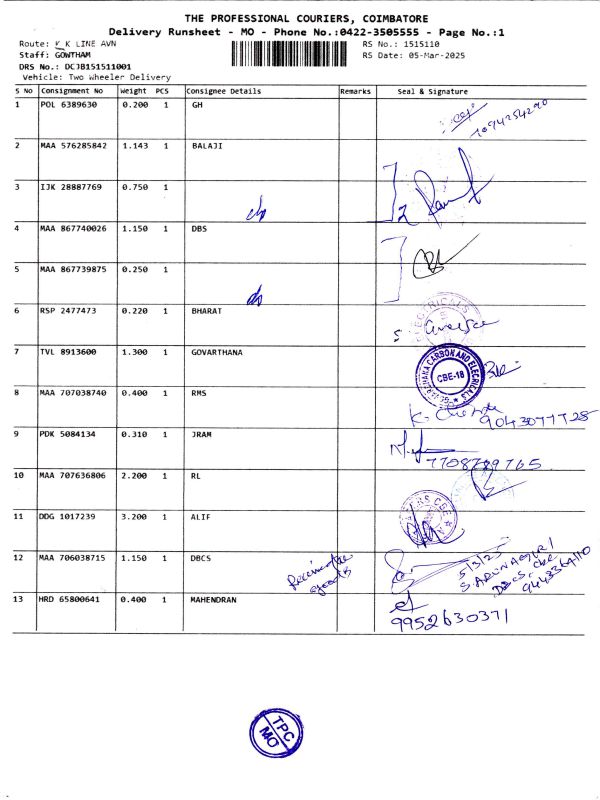 THE PROFESSIONAL COURIERS, COIMBATORE
Delivery Runsheet - MO - Phone No.:0422-3505555 - Page No.:1
Route: K K LINE AVN RS No.: 1515110
Staff: GOWTHAM RS Date: 05-Mar-2025
DRS No.: DCJB151511001
Vehicle: Two Wheeler Delivery
S No Consignment No Weight PCS Consignee Details Remarks Seal & Signature
1 POL 6389630 0.200 1 GH
2 MAA 576285842 1.143 1 BALAJI
3 IJK 28887769 0.750 1
4 MAA 867740026 1.150 1 DBS
5 MAA 867739875 0.250 1
6 RSP 2477473 0.220 1 BHARAT
7 TVL 8913600 1.300 1 GOVARTHANA
CBE-18
8 MAA 707038740 0.400 1 RMS
9043077728
9 PDK 5084134 0.310 1 JRAM
7708789765
10 MAA 707636806 2.200 1 RL
11 DDG 1017239 3.200 1 ALIF
12 MAA 706038715 1.150 1 DBCS
Received the goods
5/3/25
13 HRD 65800641 0.400 1 MAHENDRAN
9952630371
TPC
MO